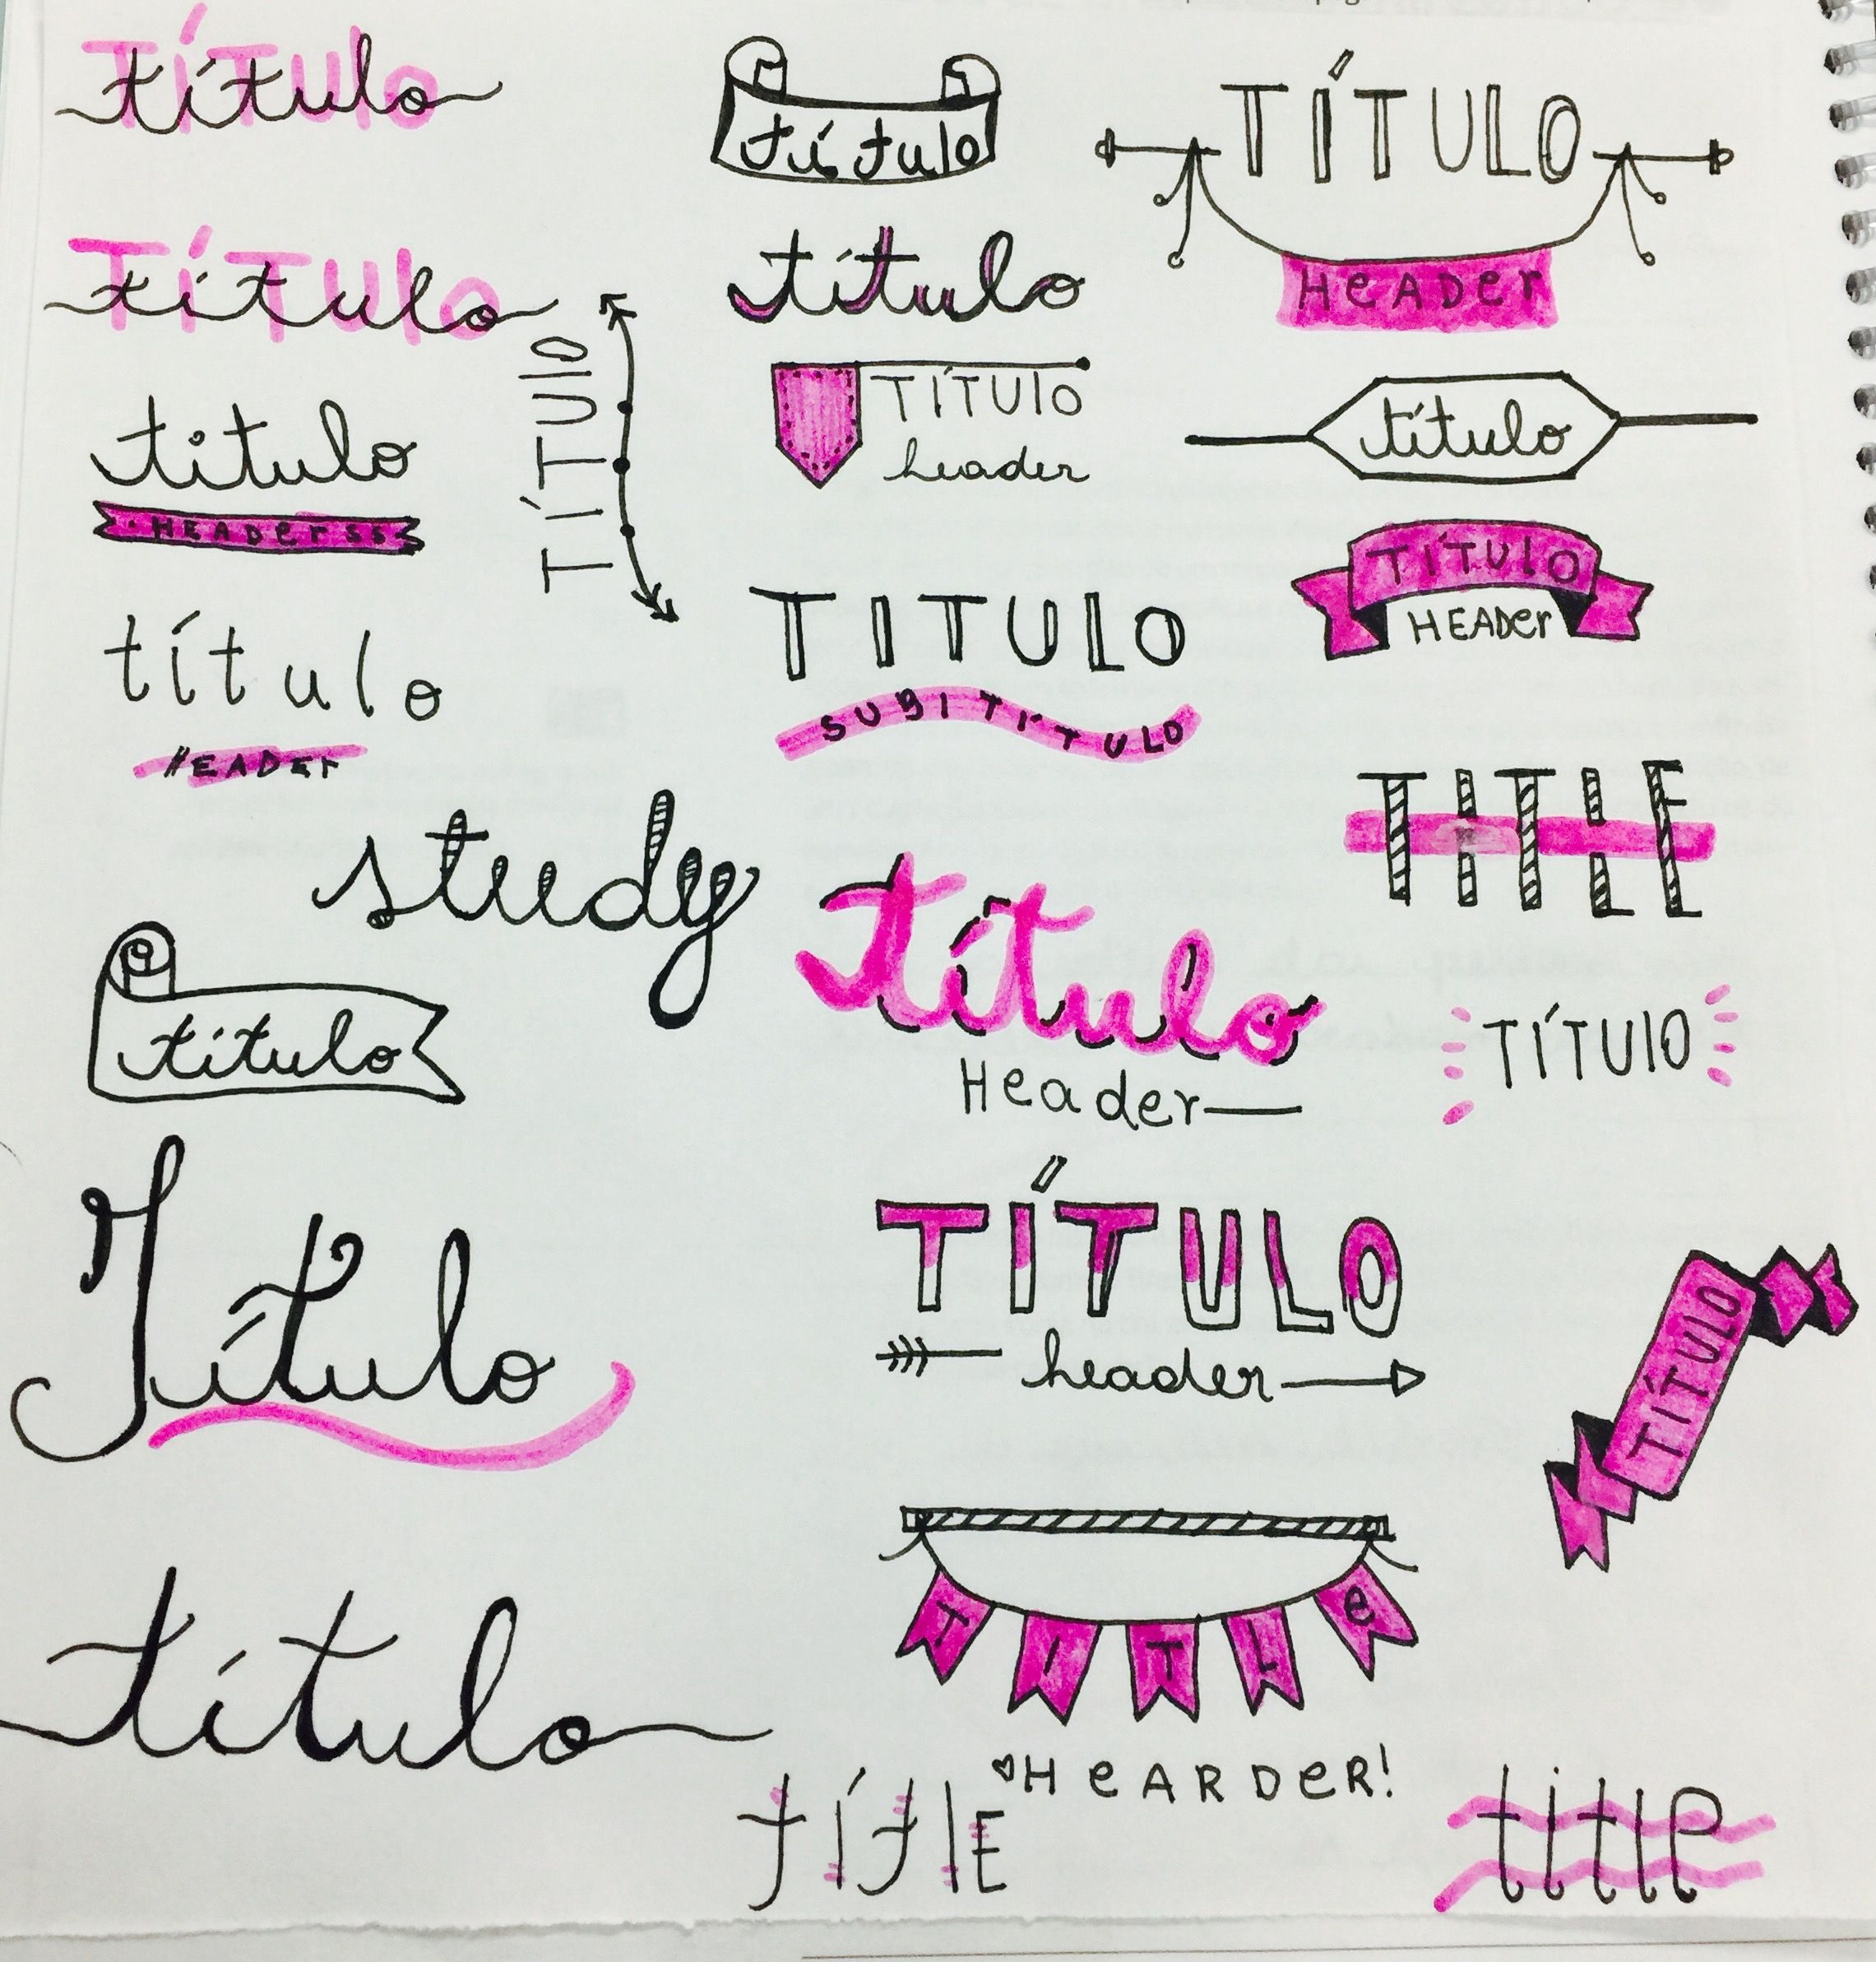 título
título
título
HEADerss
título
HEADER
TÍTULO
study
título
Título
título
título
título
TÍTULO
header
TITULO
SUBITÍTULO
título
Header
TÍTULO
header
TITLe
♥HeARDeR!
títlE
TÍTULO
HeADer
título
TÍTULO
HEADer
TITLE
TÍTULO
TÍTULO
title